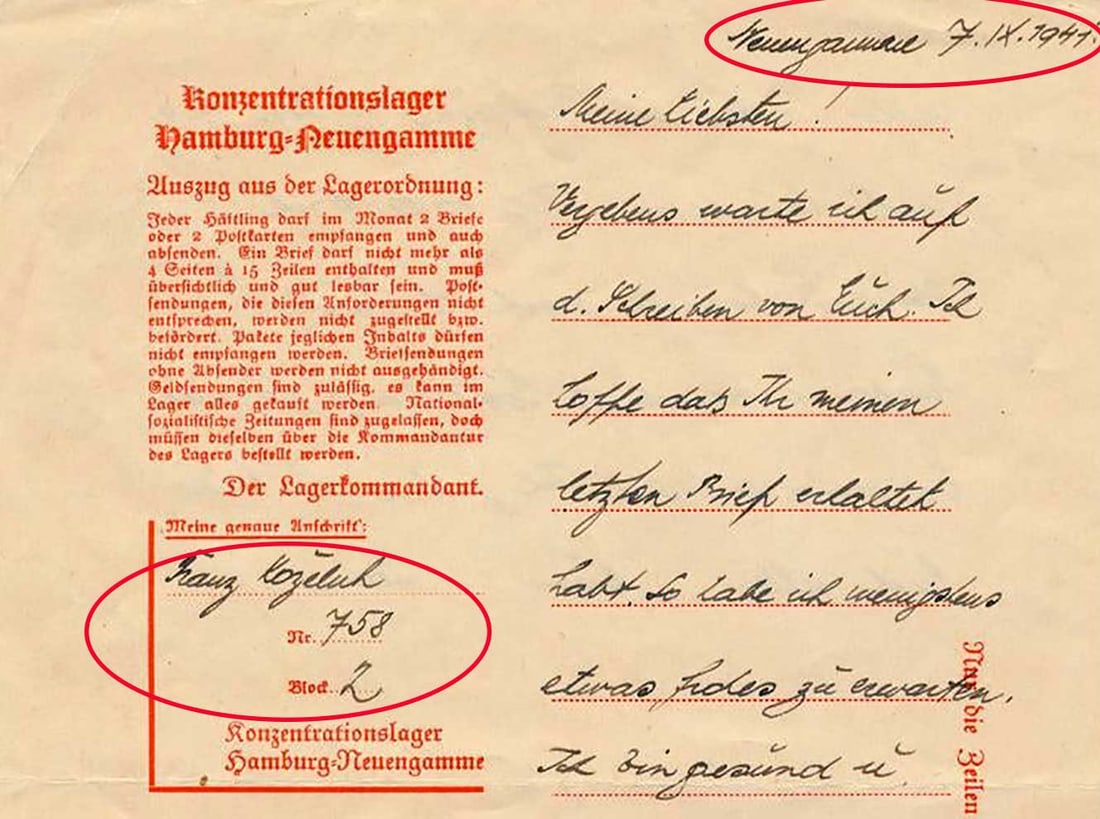 Neuengamme 7.IX.1941.
Konzentrationslager
Hamburg-Neuengamme
Auszug aus der Lagerordnung:
Jeder Häftling darf im Monat 2 Briefe
oder 2 Postkarten empfangen und auch
absenden. Ein Brief darf nicht mehr als
4 Seiten à 15 Zeilen enthalten und muß
übersichtlich und gut lesbar sein. Post-
sendungen, die diesen Anforderungen nicht
entsprechen, werden nicht zugestellt bzw.
befördert. Pakete jeglichen Inhalts dürfen
nicht empfangen werden. Briefsendungen
ohne Absender werden nicht ausgehändigt.
Geldsendungen sind zulässig, es kann im
Lager alles gekauft werden. National-
sozialistische Zeitungen sind zugelassen, doch
müssen dieselben über die Kommandantur
des Lagers bestellt werden.
Der Lagerkommandant.
Meine genaue Anschrift:
Franz Koželuh
Nr. 758
Block 2
Konzentrationslager
Hamburg-Neuengamme
Meine Liebsten!
Vergebens warte ich auf
d. Schreiben von Euch. Ich
hoffe das Ihr meinen
letzten Brief erhaltet
habt. So habe ich wenigstens
etwas zu erwarten.
Ich bin gesund u.
Nur die Zeilen